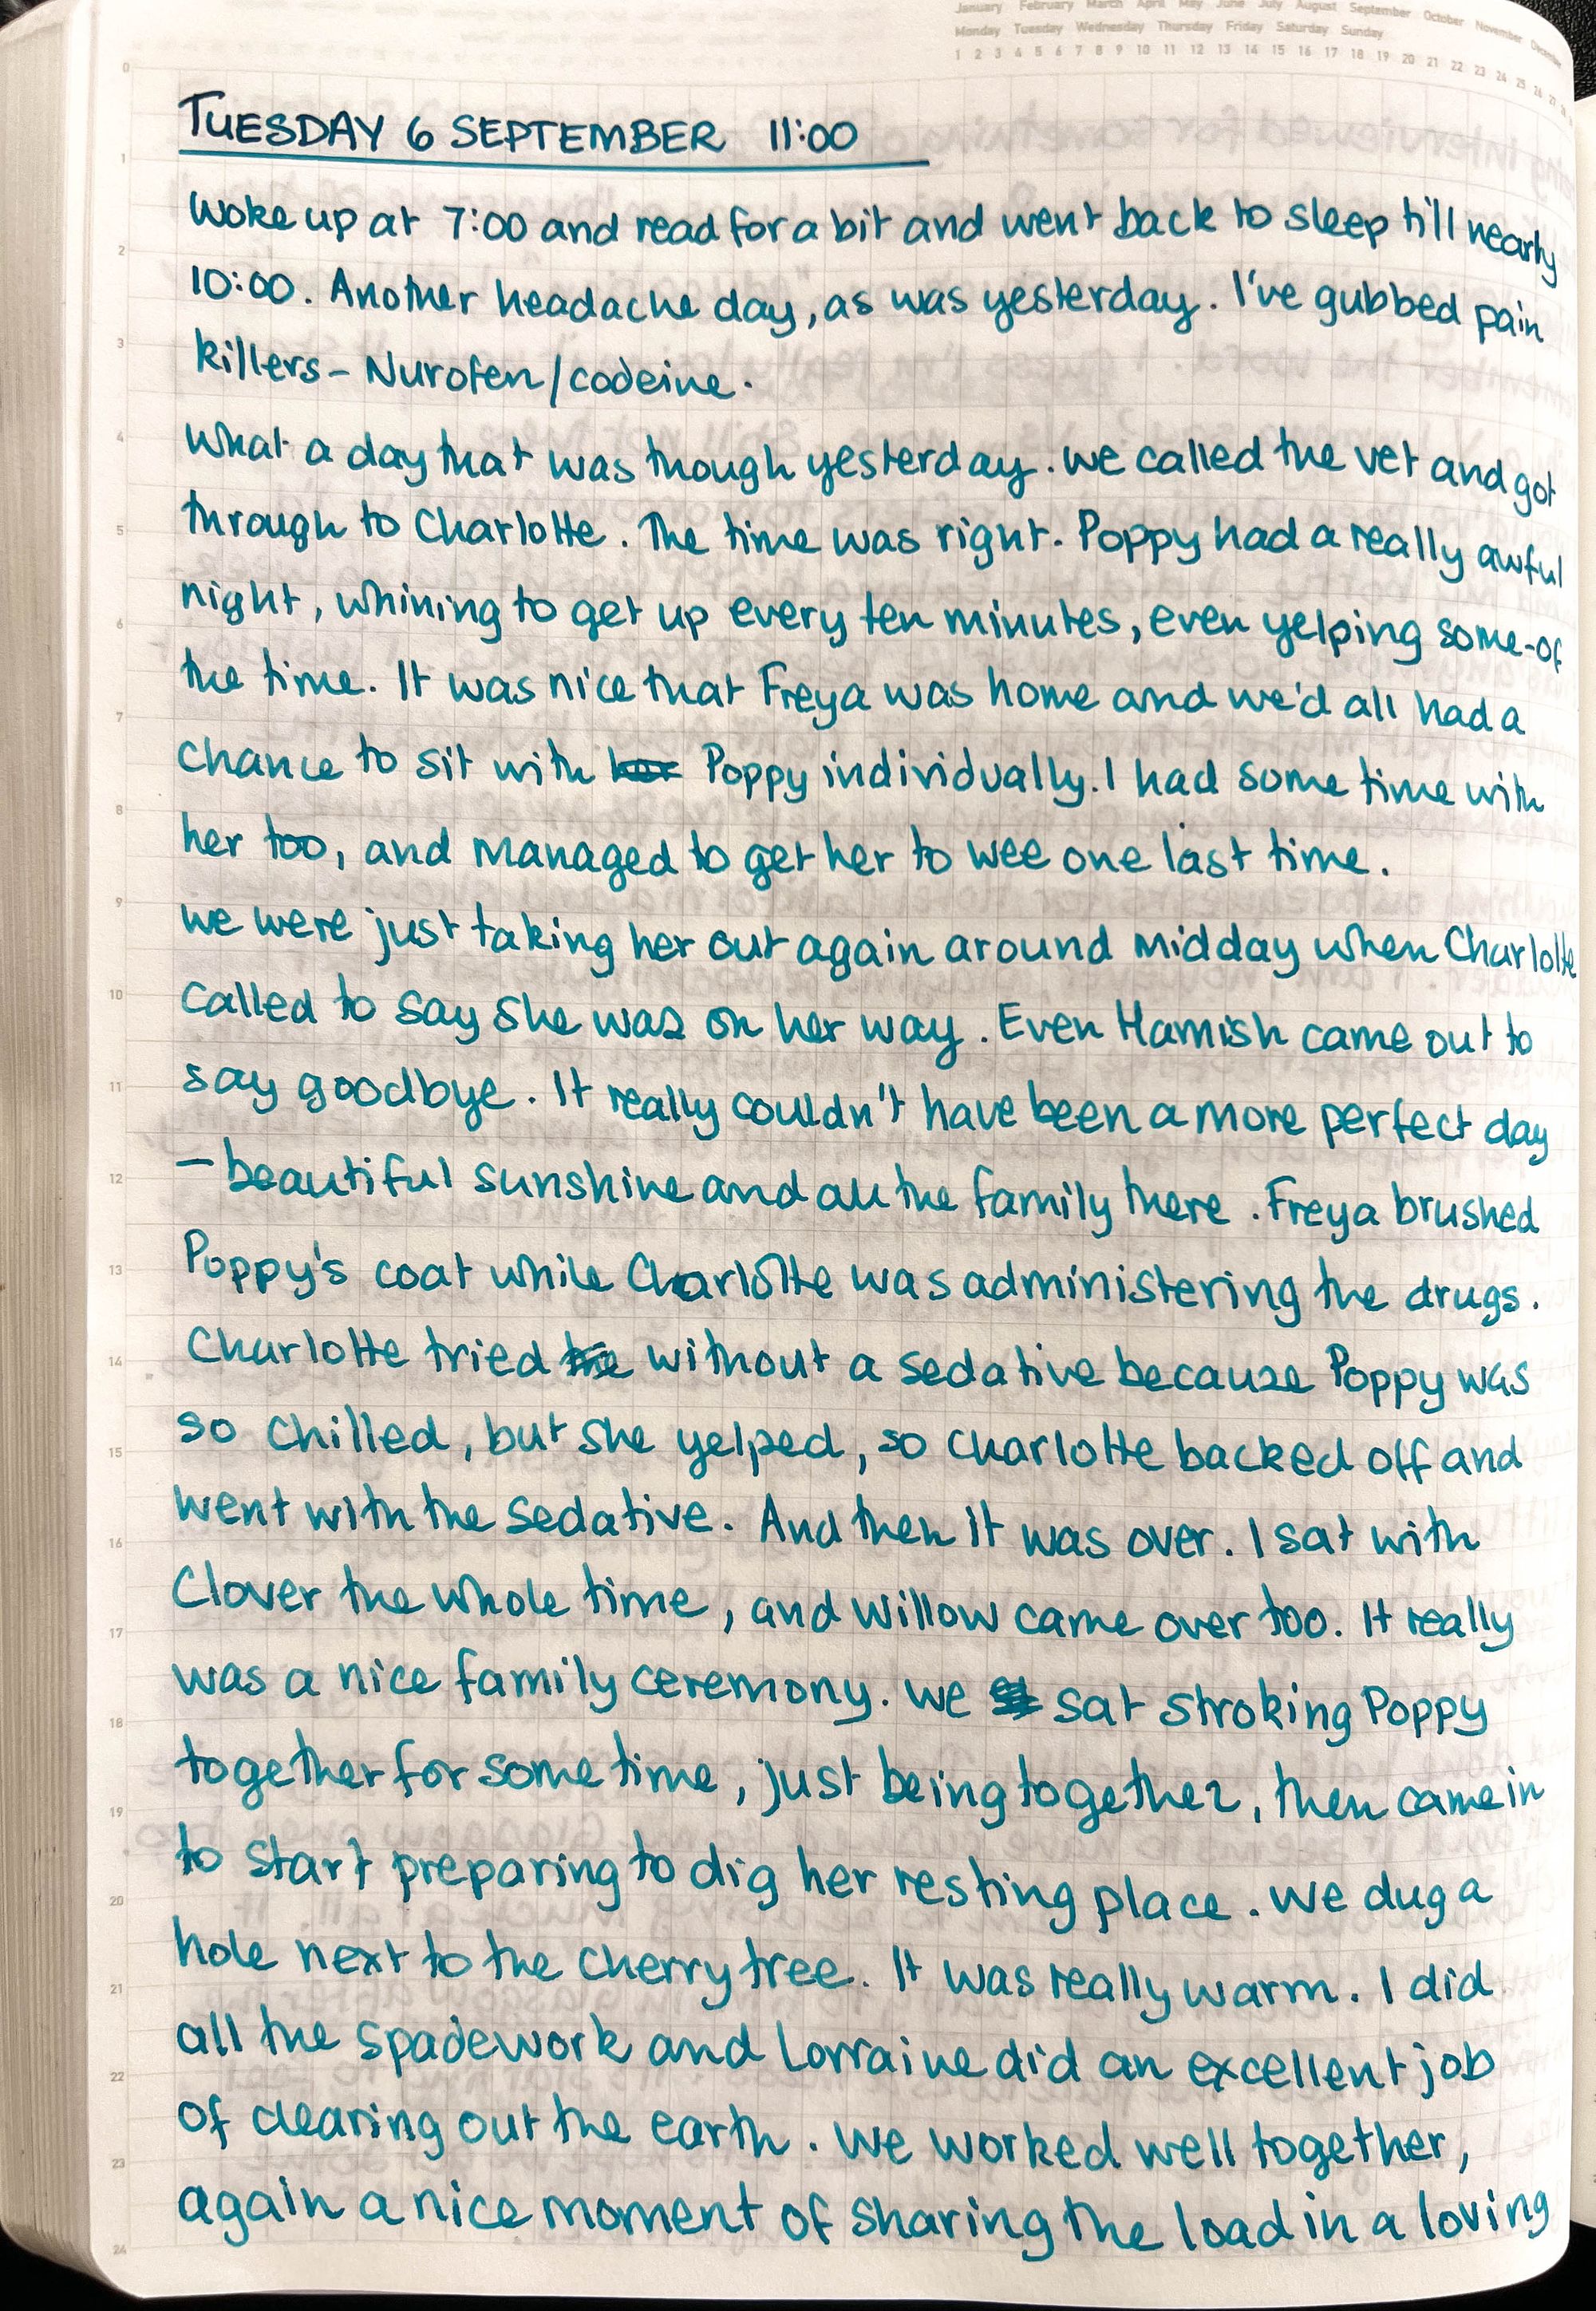 January February March April May June July August September October November December
Monday Tuesday Wednesday Thursday Friday Saturday Sunday
1 2 3 4 5 6 7 8 9 10 11 12 13 14 15 16 17 18 19 20 21 22 23 24 25 26 27
TUESDAY 6 SEPTEMBER 11:00
Woke up at 7:00 and read for a bit and went back to sleep till nearly
10:00. Another headache day, as was yesterday. I've gubbed pain
killers - Nurofen/codeine.
What a day that was though yesterday. We called the vet and got
through to Charlotte. The time was right. Poppy had a really awful
night, whining to get up every ten minutes, even yelping some-of
the time. It was nice that Freya was home and we'd all had a
chance to sit with her Poppy individually. I had some time with
her too, and managed to get her to wee one last time.
We were just taking her out again around midday when Charlotte
called to say she was on her way. Even Hamish came out to
say goodbye. It really couldn't have been a more perfect day
- beautiful sunshine and all the family there. Freya brushed
Poppy's coat while Charlotte was administering the drugs.
Charlotte tried the without a sedative because Poppy was
so chilled, but she yelped, so Charlotte backed off and
went with the sedative. And then it was over. I sat with
Clover the whole time, and Willow came over too. It really
was a nice family ceremony. We sat stroking Poppy
together for some time, just being together, then came in
to start preparing to dig her resting place. We dug a
hole next to the cherry tree. It was really warm. I did
all the spadework and Lorraine did an excellent job
of clearing out the earth. We worked well together,
again a nice moment of sharing the load in a loving
0
1
2
3
4
5
6
7
8
9
10
11
12
13
14
15
16
17
18
19
20
21
22
23
24